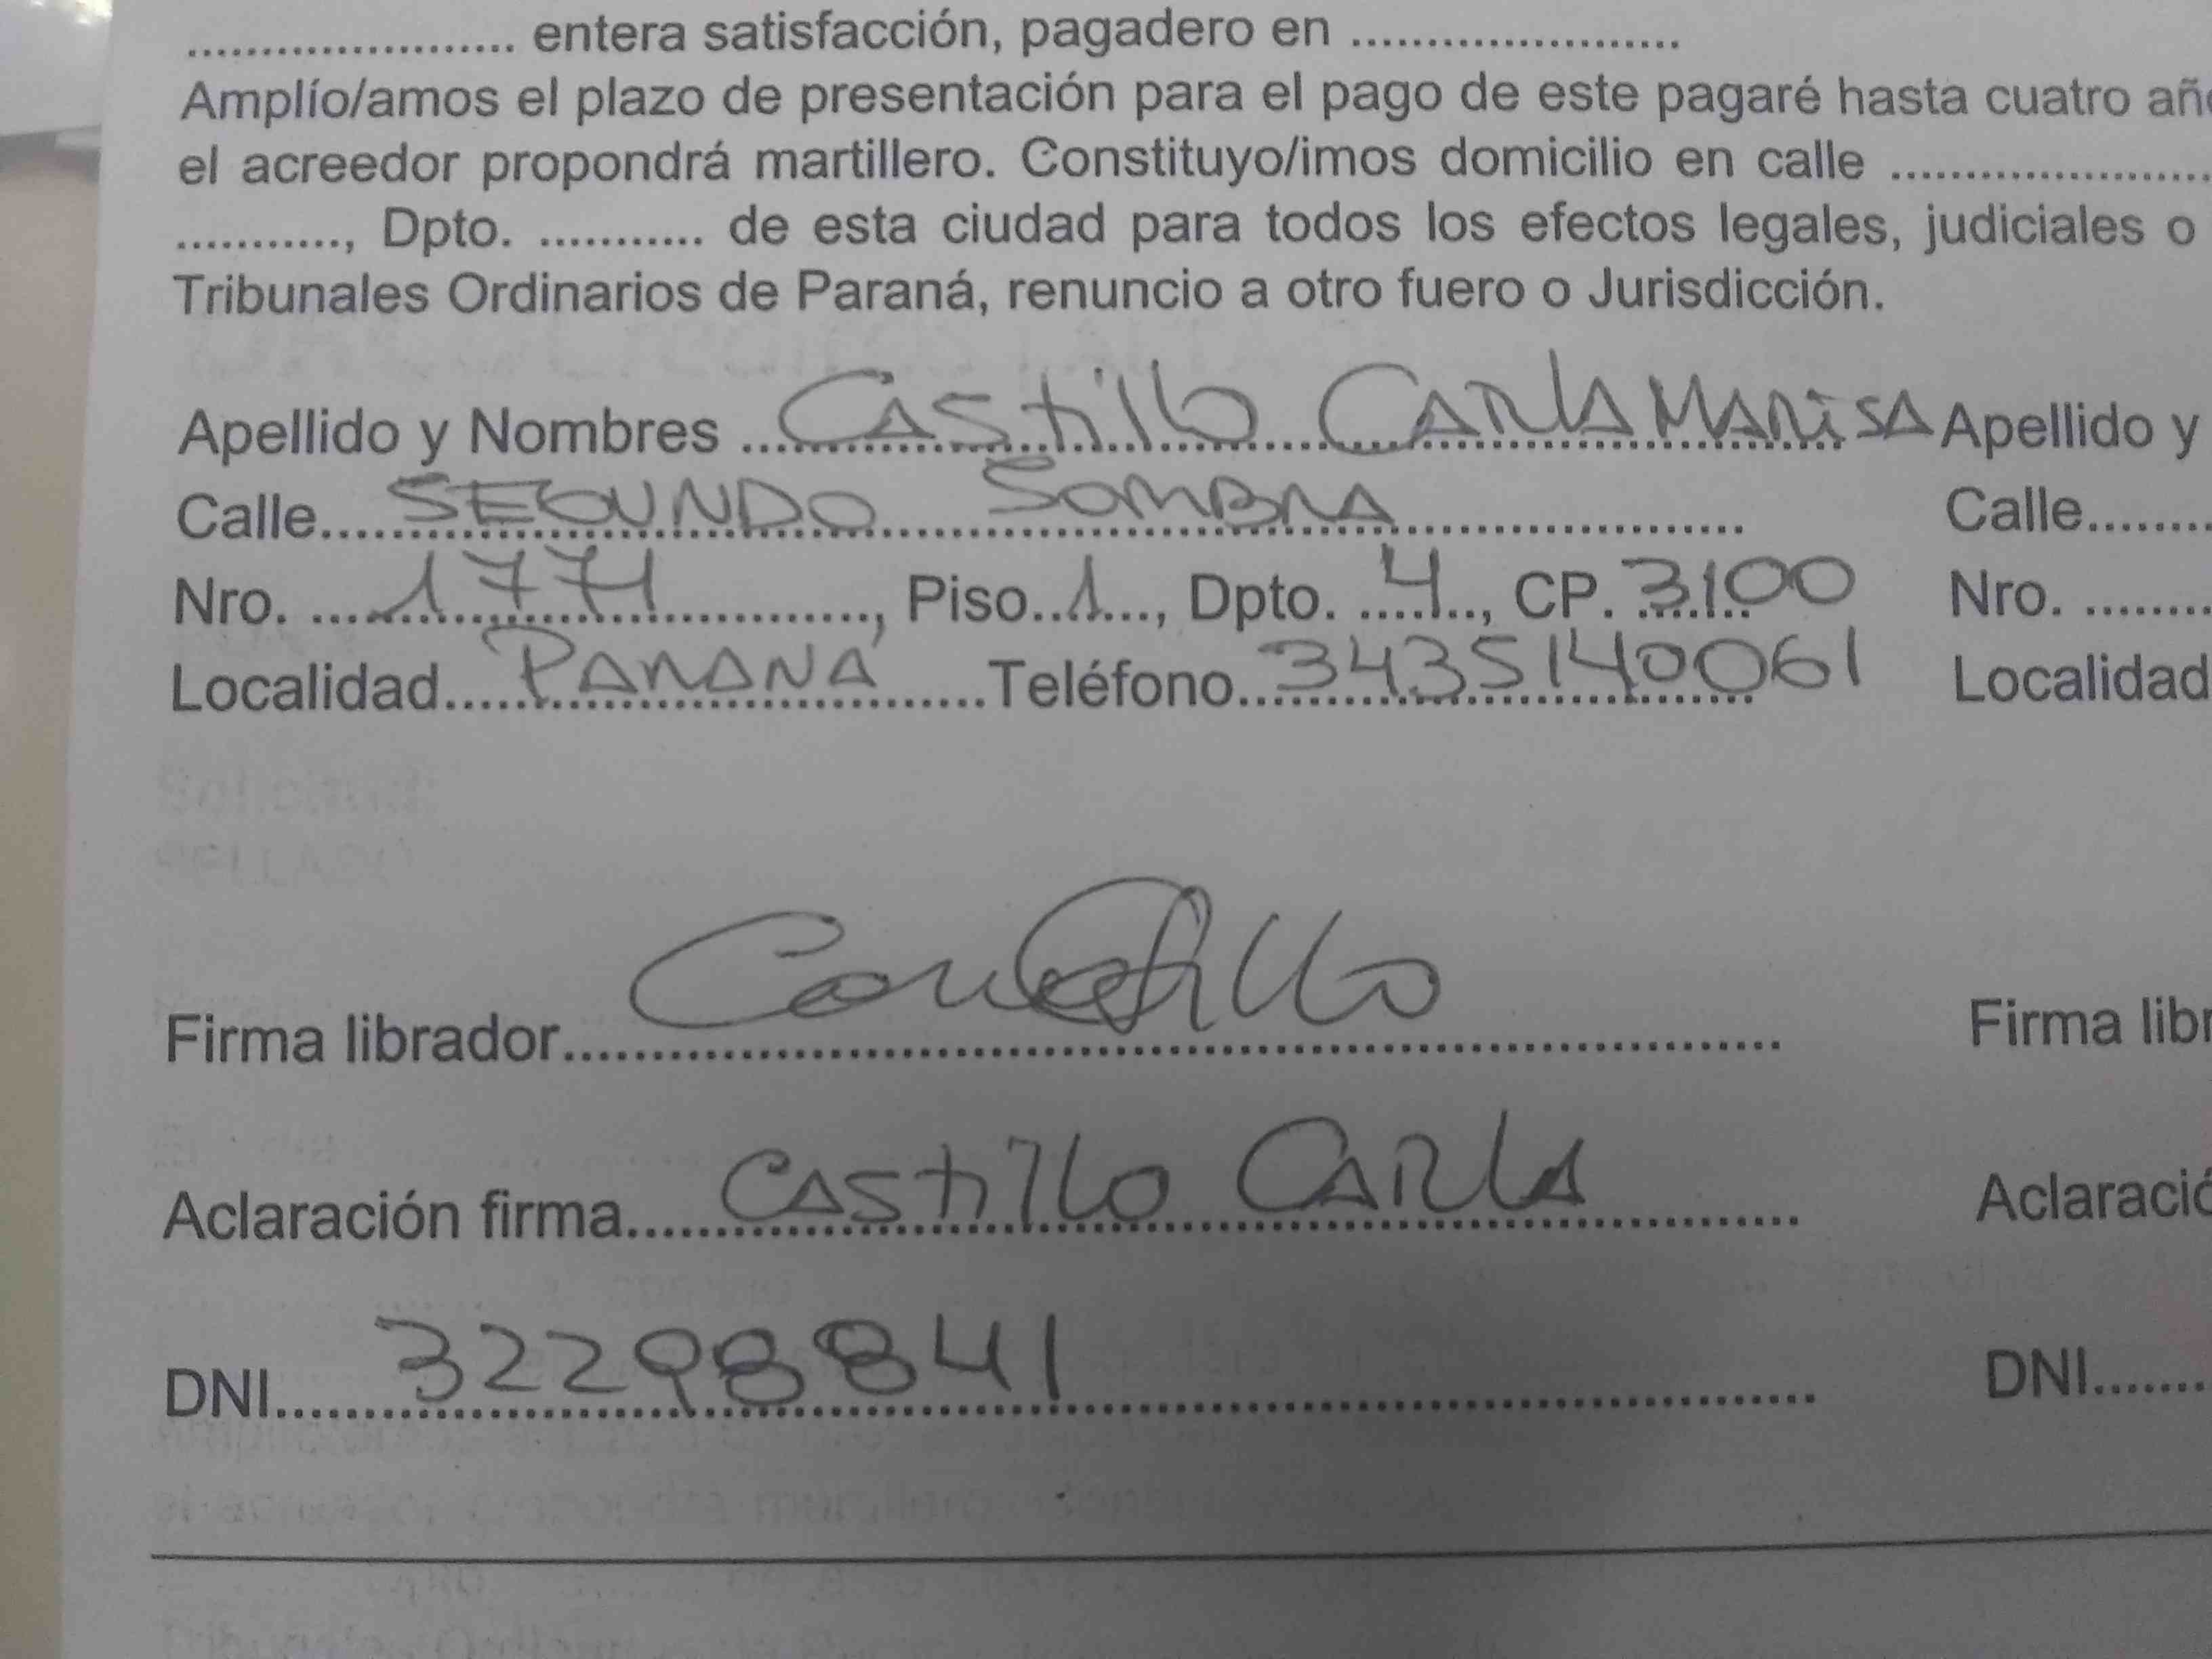 ...................... entera satisfacción, pagadero en ......................
Amplío/amos el plazo de presentación para el pago de este pagaré hasta cuatro añ
el acreedor propondrá martillero. Constituyo/imos domicilio en calle ......................
..........., Dpto. ........... de esta ciudad para todos los efectos legales, judiciales o
Tribunales Ordinarios de Paraná, renuncio a otro fuero o Jurisdicción.
Apellido y Nombres ... Castillo Carla Marisa Apellido y
Calle..... SEGUNDO SOMBRA ..... Calle........
Nro. .... 1771 ...., Piso.. 1 ..., Dpto. .. 4 .., CP. 3100 Nro. ........
Localidad.... PARANÁ ......Teléfono.. 3435140061 Localidad
Firma librador.... Castillo .... Firma libr
Aclaración firma.... CASTILLO CARLA .... Aclaració
DNI.... 32298841 .... DNI.......